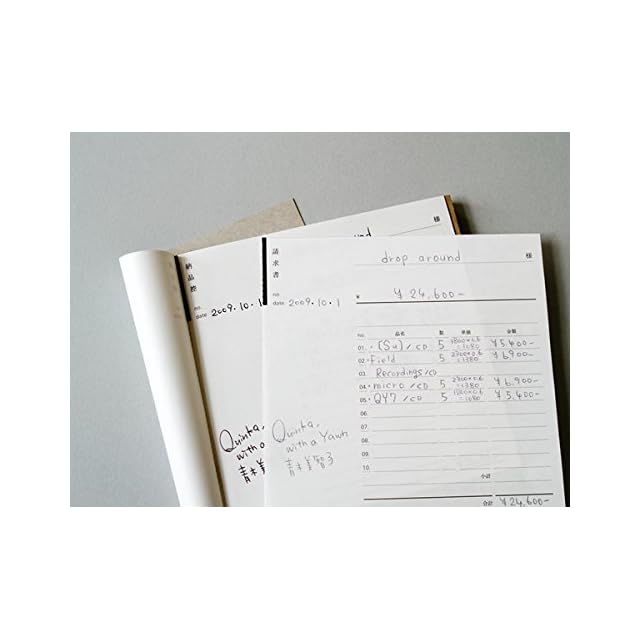 納品控
no.
date 2009.10.1
Quinka,
with a
青木
様
round
請求書
no.
date 2009.10.1
Quinka,
with a Yawn
青木美智子
drop around 様
¥ ¥24,600-
no. 品名 数 単価 金額
01. ・(Su)/CD 5 1800×0.6=1080 ¥5,400-
02. ・Field 5 2300×0.6=1380 ¥6,900-
03. Recordings/CD
04. ・micro/CD 5 2300×0.6=1380 ¥6,900-
05. ・QY7/CD 5 1800×0.6=1080 ¥5,400-
06.
07.
08.
09.
10.
小計
合計 ¥24,600-